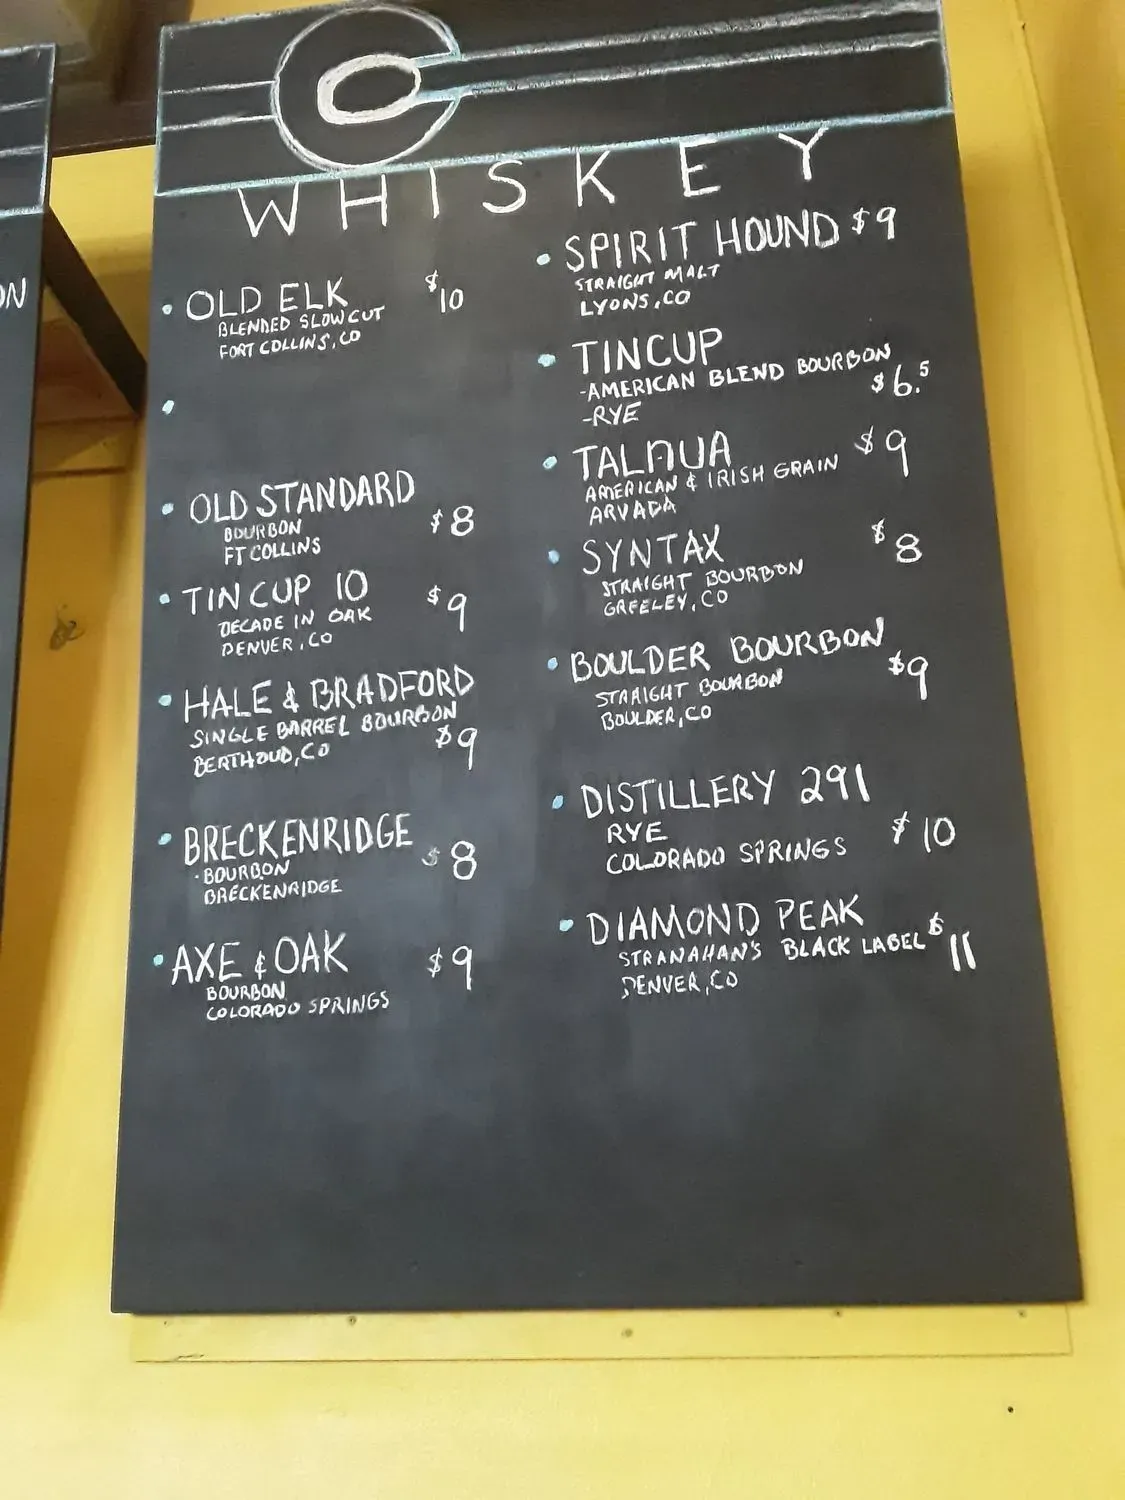 ON
WHISKEY
• OLD ELK $10
BLENDED SLOW CUT
FORT COLLINS, CO
•
• OLD STANDARD
BOURBON $8
FT COLLINS
• TIN CUP 10 $9
DECADE IN OAK
DENVER, CO
• HALE & BRADFORD
SINGLE BARREL BOURBON
BERTHOUD, CO $9
• BRECKENRIDGE $8
-BOURBON
BRECKENRIDGE
• AXE & OAK $9
BOURBON
COLORADO SPRINGS
• SPIRIT HOUND $9
STRAIGHT MALT
LYONS, CO
• TINCUP
-AMERICAN BLEND BOURBON
-RYE $6.5
• TALNUA $9
AMERICAN & IRISH GRAIN
ARVADA
• SYNTAX $8
STRAIGHT BOURBON
GREELEY, CO
• BOULDER BOURBON
STRAIGHT BOURBON $9
BOULDER, CO
• DISTILLERY 291
RYE $10
COLORADO SPRINGS
• DIAMOND PEAK
STRANAHAN'S BLACK LABEL $11
DENVER, CO